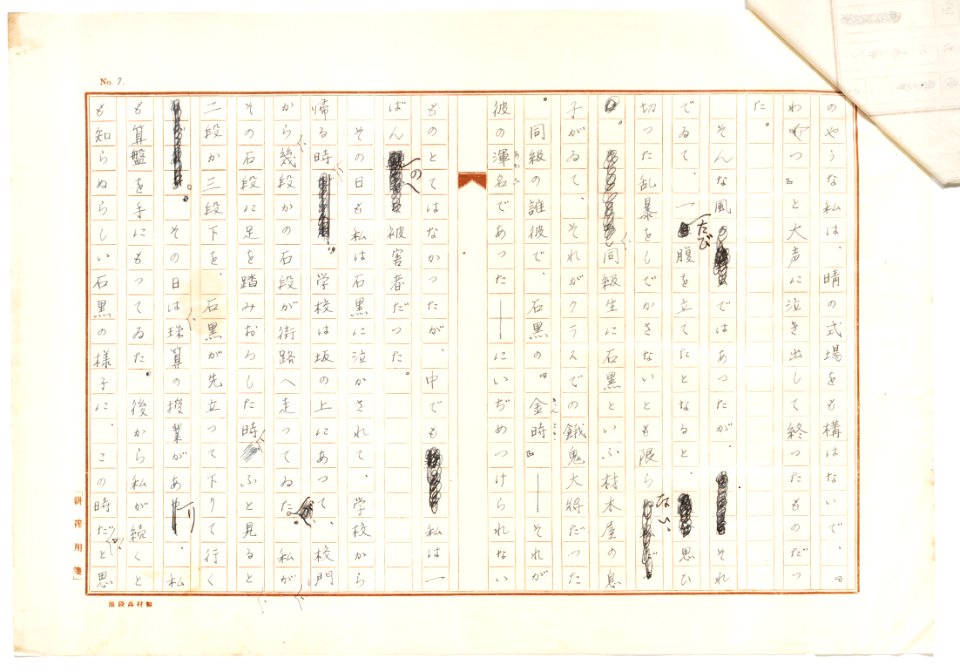 No. 7.
のやうな私は、晴の式場をも構はないで、『
わ゛つ』と大声に泣き出して終つたものだつ
た。
そんな風ではあつたが、それ
でゐて、一たび腹を立てたとなると、思ひ
切つた乱暴をしでかさないとも限らない
。同級生に石黒といふ材木屋の息
子がゐて、それがクラスでの餓鬼大将だつた
。同級の誰彼で、石黒の『金時』――それが
彼の渾名であつた――にいぢめつけられない
ものとてはなかつたが、中でも私は一
ばんの被害者だつた。
その日も私は石黒に泣かされて、学校から
帰る時。学校は坂の上にあつて、校門
から幾段かの石段が街路へ走つてゐた。私が
その石段に足を踏みおらした時、ふと見ると
二段か三段下を、石黒が先立つて下りて行く
。その日は珠算の授業があり、私
も算盤を手にもつてゐた。後から私が続くと
も知らぬらしい石黒の様子に、この時だと思
「耕筰用箋」